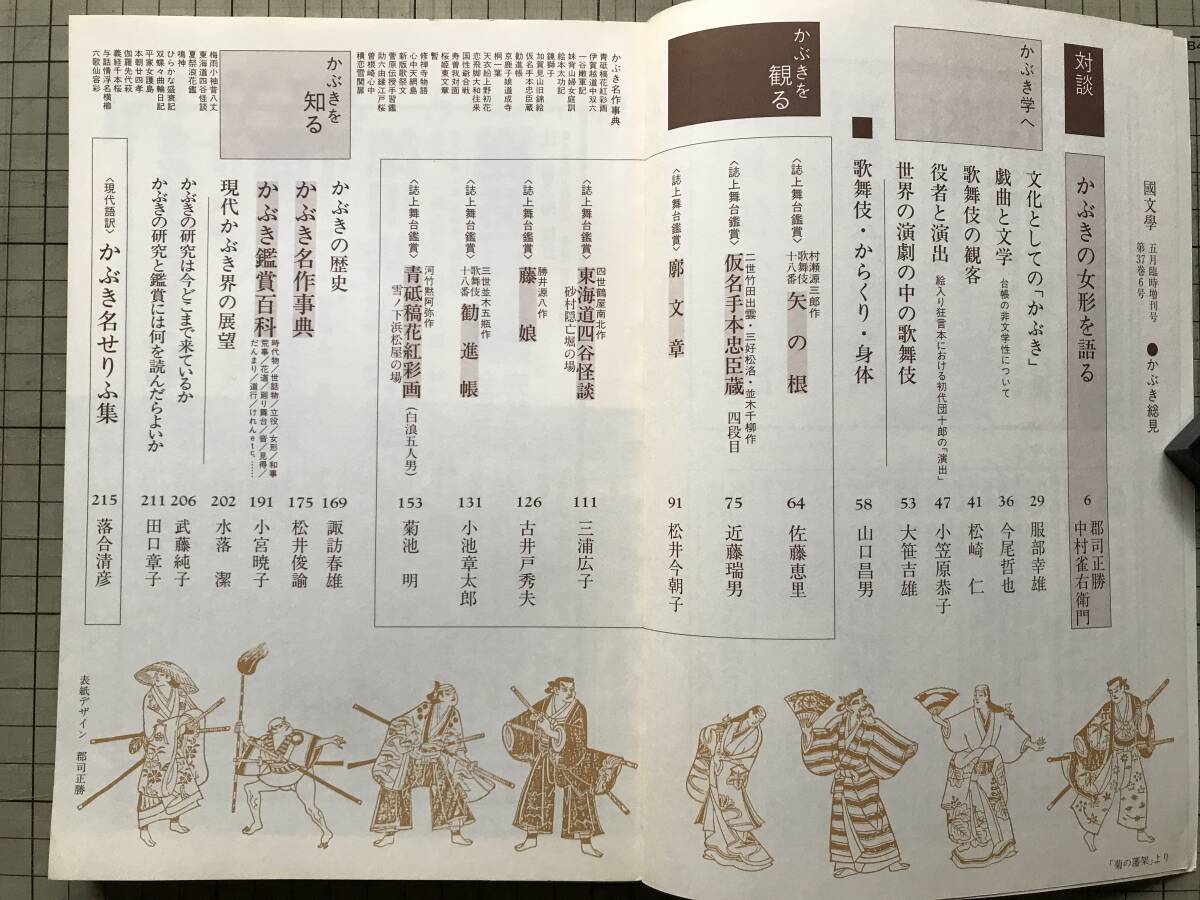 國文學 五月臨時増刊号 第37巻6号 ●かぶき総見
対談
かぶきの女形を語る 6 郡司正勝 中村雀右衛門
かぶき学へ
文化としての「かぶき」 29 服部幸雄
戯曲と文学 台帳の非文学性について 36 今尾哲也
歌舞伎の観客 41 松崎 仁
役者と演出 絵入り狂言本における初代団十郎の「演出」 47 小笠原恭子
世界の演劇の中の歌舞伎 53 大笹吉雄
■歌舞伎・からくり・身体 58 山口昌男
かぶきを観る
〈誌上舞台鑑賞〉 村瀬源三郎作 歌舞伎十八番 矢の根 64 佐藤恵里
〈誌上舞台鑑賞〉 二世竹田出雲・三好松洛・並木千柳作 仮名手本忠臣蔵 四段目 75 近藤瑞男
〈誌上舞台鑑賞〉 廓文章 91 松井今朝子
〈誌上舞台鑑賞〉 四世鶴屋南北作 東海道四谷怪談 砂村隠亡堀の場 111 三浦広子
〈誌上舞台鑑賞〉 勝井源八作 藤娘 126 古井戸秀夫
〈誌上舞台鑑賞〉 三世並木五瓶作 歌舞伎十八番 勧進帳 131 小池章太郎
〈誌上舞台鑑賞〉 河竹黙阿弥作 青砥稿花紅彩画 雪ノ下浜松屋の場 (白浪五人男) 153 菊池 明
かぶき名作事典
青砥稿花紅彩画
伊賀越道中双六
一谷嫩軍記
妹背山婦女庭訓
絵本太功記
鏡獅子
加賀見山旧錦絵
仮名手本忠臣蔵
勧進帳
京鹿子娘道成寺
桐一葉
天衣紛上野初花
恋飛脚大和往来
国性爺合戦
寿曽我対面
桜姫東文章
暫
修禅寺物語
心中天網島
新版歌祭文
菅原伝授手習鑑
助六由縁江戸桜
曽根崎心中
積恋雪関扉
かぶきを知る
梅雨小袖昔八丈
東海道四谷怪談
夏祭浪花鑑
鳴神
ひらかな盛衰記
双蝶々曲輪日記
平家女護島
本朝廿四孝
伽羅先代萩
義経千本桜
与話情浮名横櫛
六歌仙容彩
かぶきの歴史 169 諏訪春雄
かぶき名作事典 175 松井俊諭
かぶき鑑賞百科 時代物/世話物/立役/女形/和事/荒事/花道/廻り舞台/音/見得/だんまり/道行/けれんetc…… 191 小宮暁子
現代かぶき界の展望 202 水落 潔
かぶきの研究は今どこまで来ているか 206 武藤純子
かぶきの研究と鑑賞には何を読んだらよいか 211 田口章子
〈現代語訳〉かぶき名せりふ集 215 落合清彦
表紙デザイン 郡司正勝
「菊の籬架」より